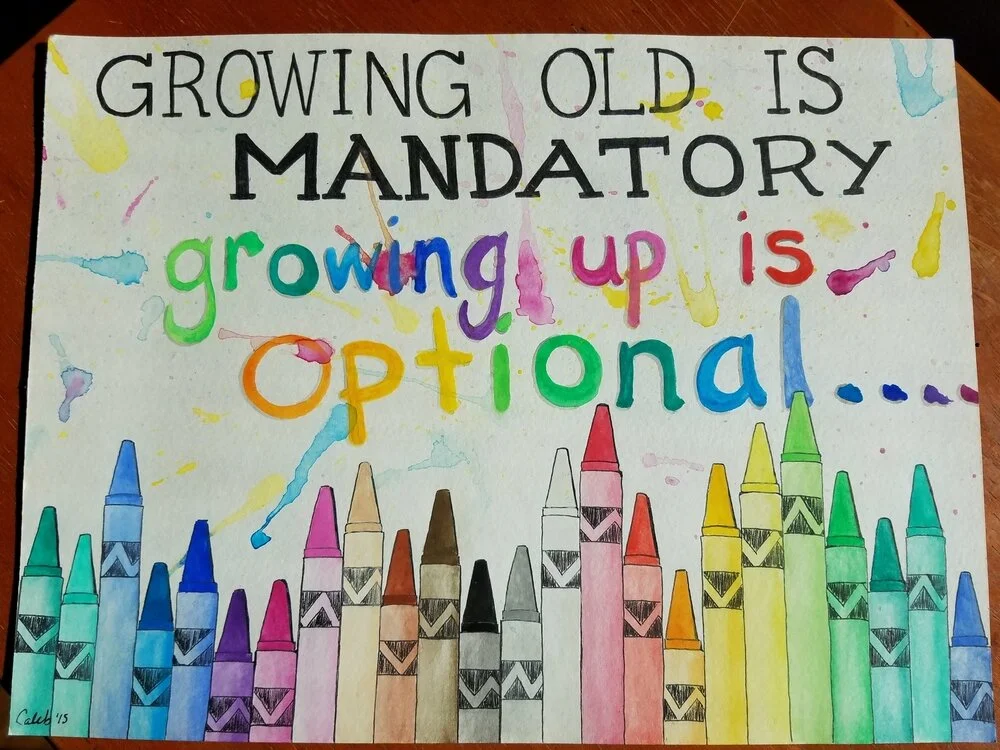 GROWING OLD IS
MANDATORY
growing up is
Optional....
Caleb '15